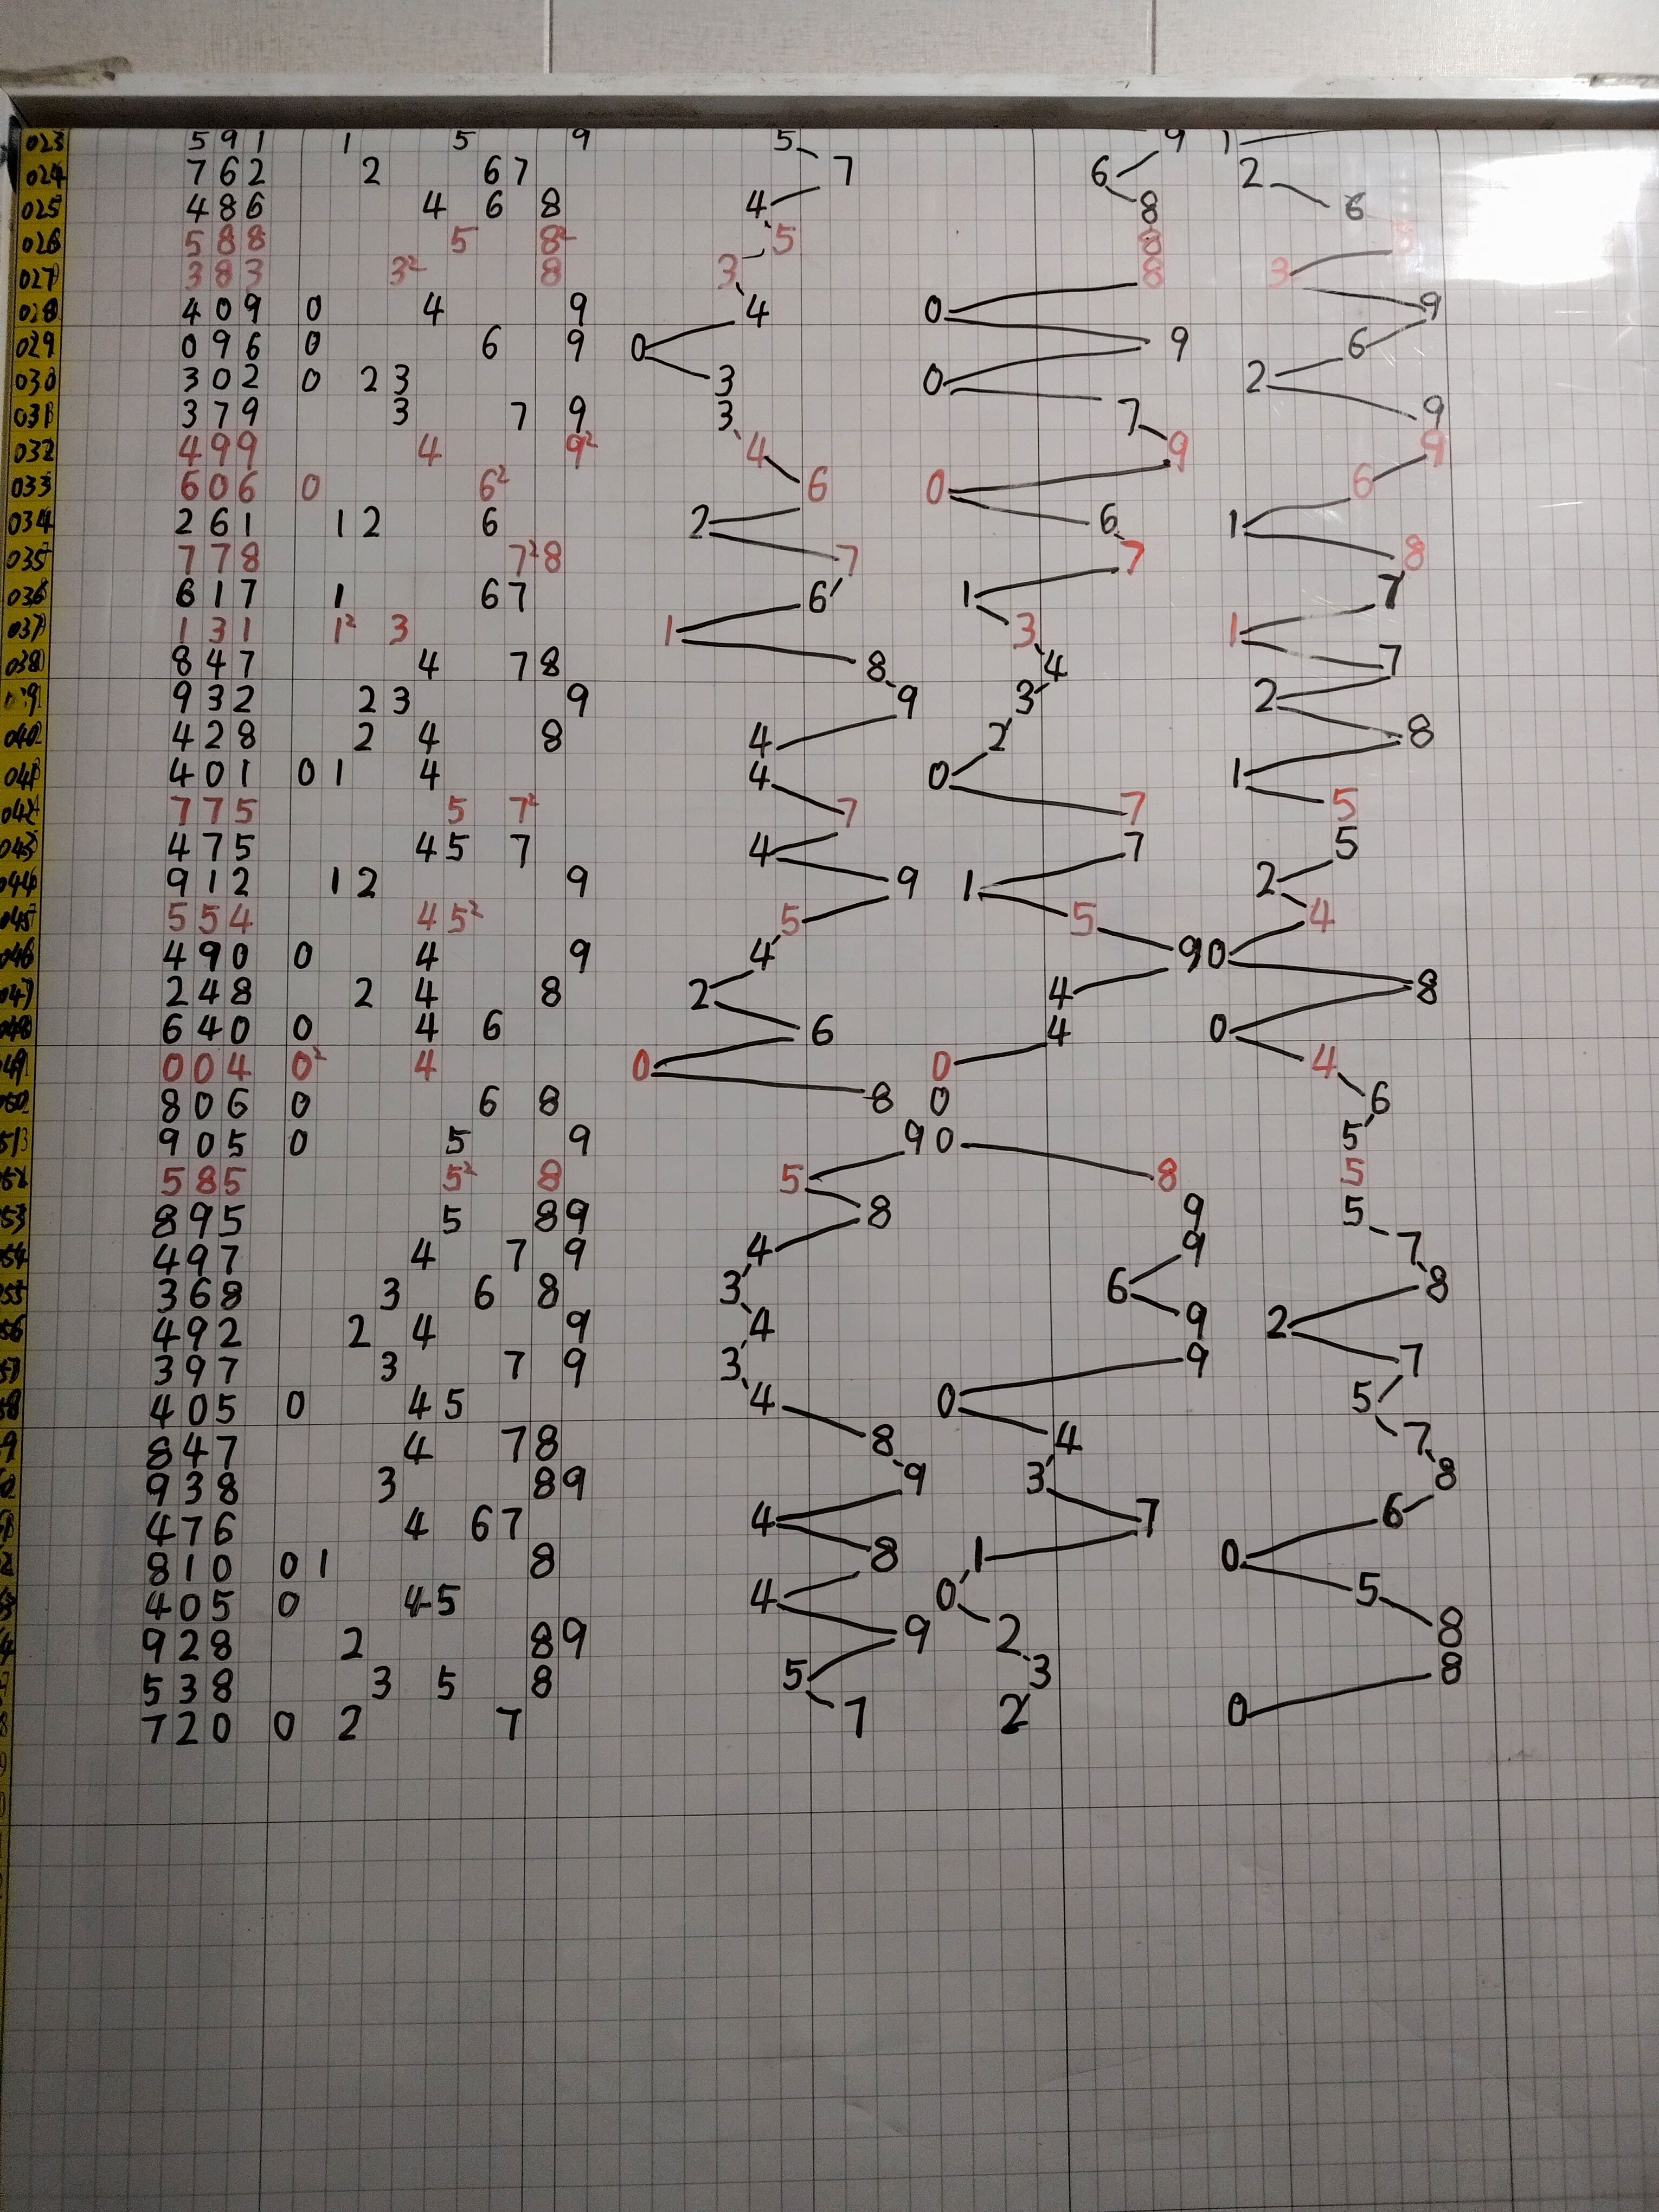 023 591 1 5 9 5 9 1
024 762 2 6 7 7 6 2
025 486 4 6 8 4 8 6
026 588 5 8² 5 8 8
027 383 3² 8 3 8 3
028 409 0 4 9 4 0 9
029 096 0 6 9 0 9 6
030 302 0 2 3 3 0 2
031 379 3 7 9 3 7 9
032 499 4 9² 4 9 9
033 606 0 6² 6 0 6
034 261 1 2 6 2 6 1
035 778 7² 8 7 7 8
036 617 1 6 7 6 1 7
037 131 1² 3 1 3 1
038 847 4 7 8 8 4 7
039 932 2 3 9 9 3 2
040 428 2 4 8 4 2 8
041 401 0 1 4 4 0 1
042 775 5 7² 7 7 5
043 475 4 5 7 4 7 5
044 912 1 2 9 9 1 2
045 554 4 5² 5 5 4
046 490 0 4 9 4 9 0
047 248 2 4 8 2 4 8
048 640 0 4 6 6 4 0
049 004 0² 4 0 0 4
050 806 0 6 8 8 0 6
51 905 0 5 9 9 0 5
52 585 5² 8 5 8 5
53 895 5 8 9 8 9 5
54 497 4 7 9 4 9 7
55 368 3 6 8 3 6 8
56 492 2 4 9 4 9 2
57 397 3 7 9 3 9 7
8 405 0 4 5 4 0 5
9 847 4 7 8 8 4 7
0 938 3 8 9 9 3 8
476 4 6 7 4 7 6
2 810 0 1 8 8 1 0
405 0 4 5 4 0 5
4 928 2 8 9 9 2 8
538 3 5 8 5 3 8
8 720 0 2 7 7 2 0
9
0